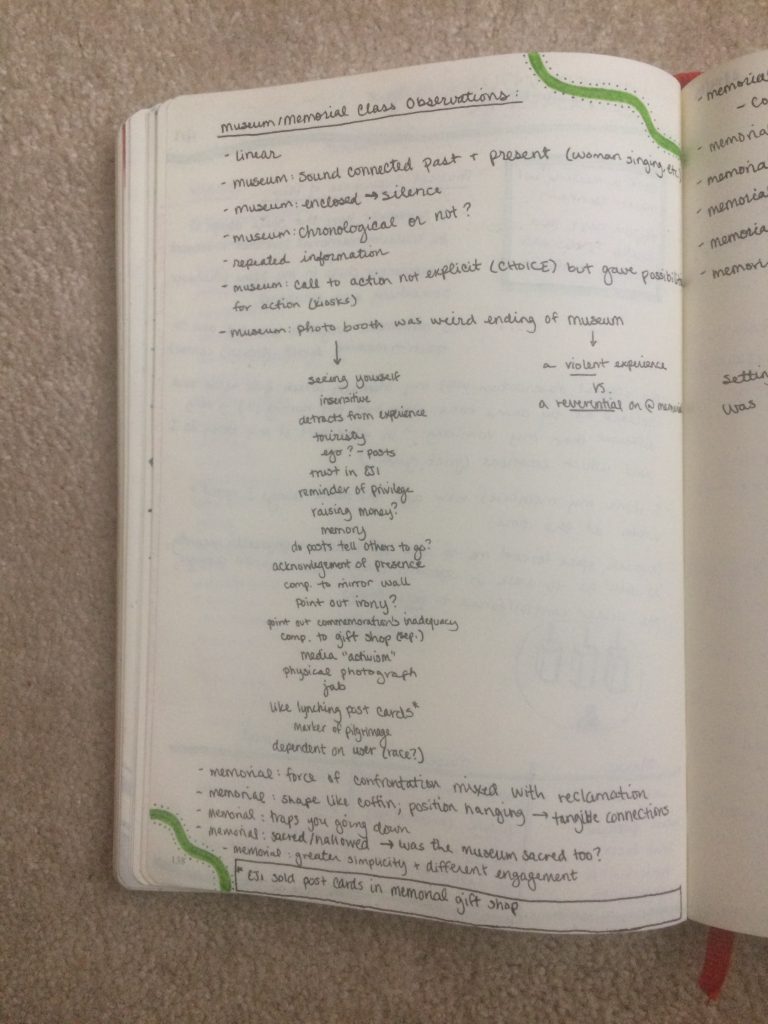 museum/memorial class observations:
- linear
- museum: sound connected past + present (woman singing, etc)
- museum: enclosed → silence
- museum: chronological or not?
- repeated information
- museum: call to action not explicit (CHOICE) but gave possibili
for action (kiosks)
- museum: photo booth was weird ending of museum
↓
seeing yourself
insensitive
detracts from experience
touristy
ego? - posts
trust in EJI
reminder of privilege
raising money?
memory
do posts tell others to go?
acknowlegement of presence
comp. to mirror wall
point out irony?
point out commemoration's inadequacy
comp. to gift shop (sep.)
media "activism"
physical photograph
jab
like lynching post cards*
marker of pilgrimage
dependent on user (race?)
↓
a violent experience
vs.
a reverential on @
- memorial: force of confrontation mixed with reclamation
- memorial: shape like coffin; position hanging → tangible connections
- memorial: traps you going down
- memorial: sacred/hallowed → was the museum sacred too?
- memorial: greater simplicity + different engagement
* EJI sold post cards in memorial gift shop
138
- memorial
- co
- memoria
- memoria
- memorial
- memoria
- memori
settin
was